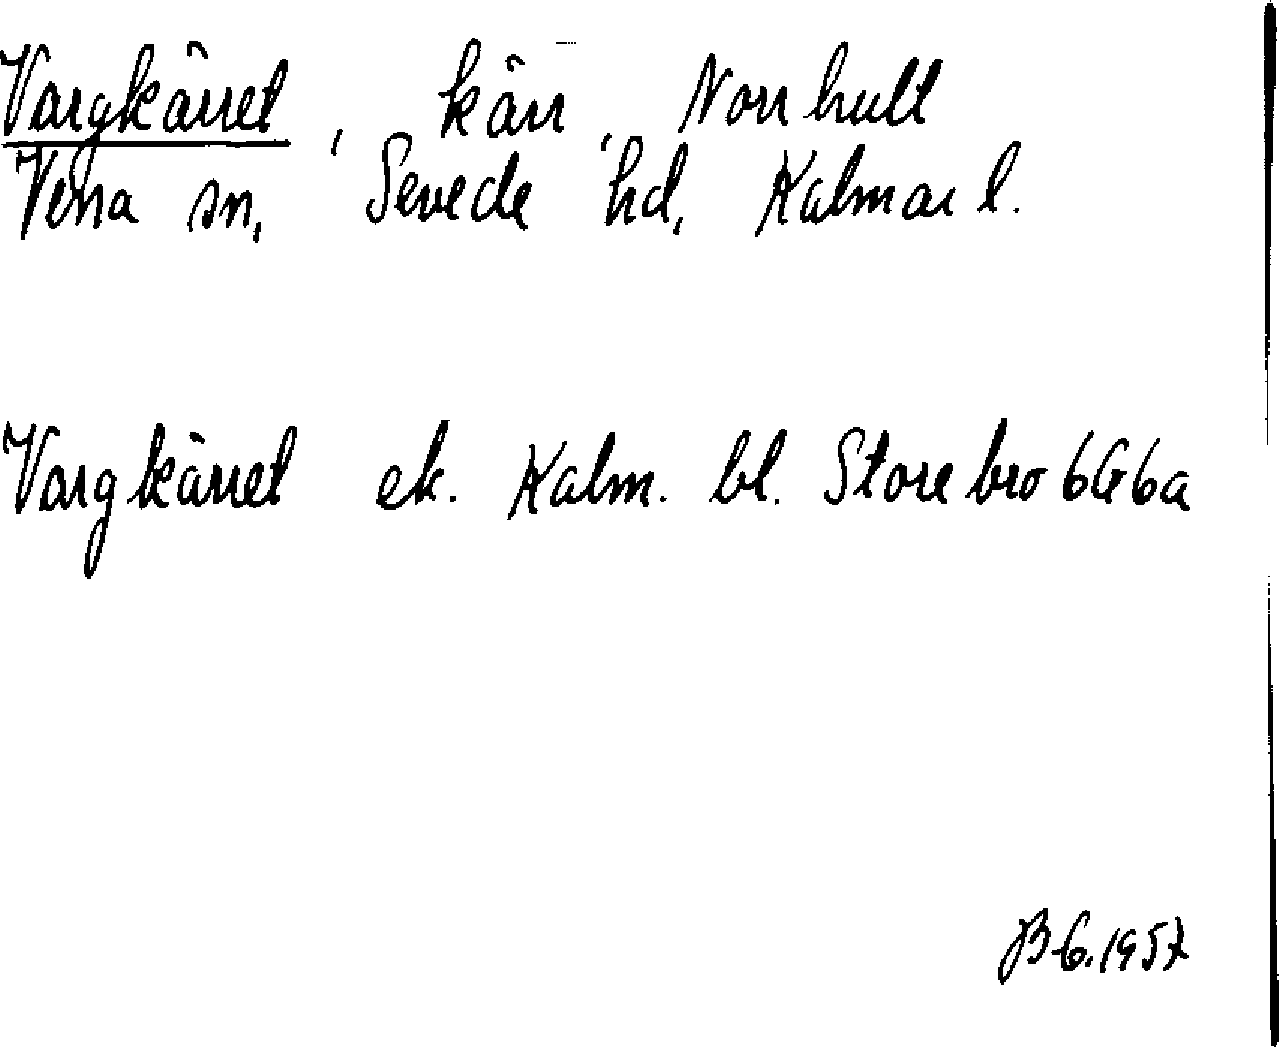 Vargkärret, kärr, Norrhult
Vena sn, Sevede hd, Kalmar l.
Vargkärret ek. Kalm. bl. Storebro 6G6a
BG.1957